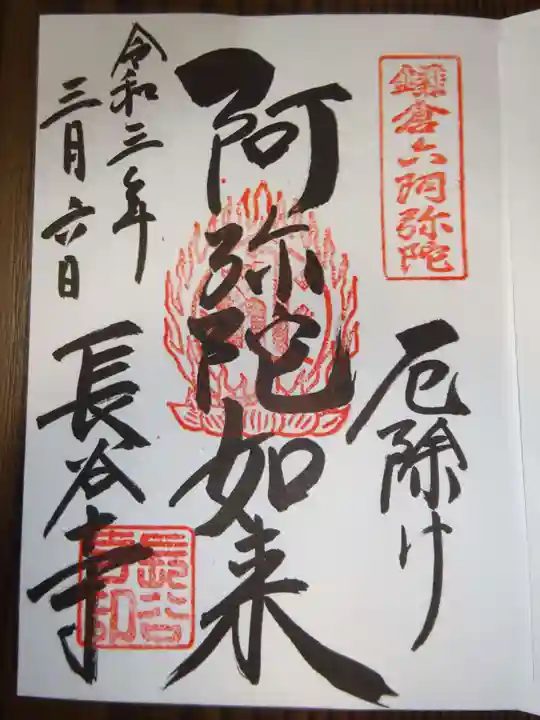 鎌倉六阿弥陀
厄除け
阿弥陀如来
令和三年
三月六日
長谷寺
長谷
寺印